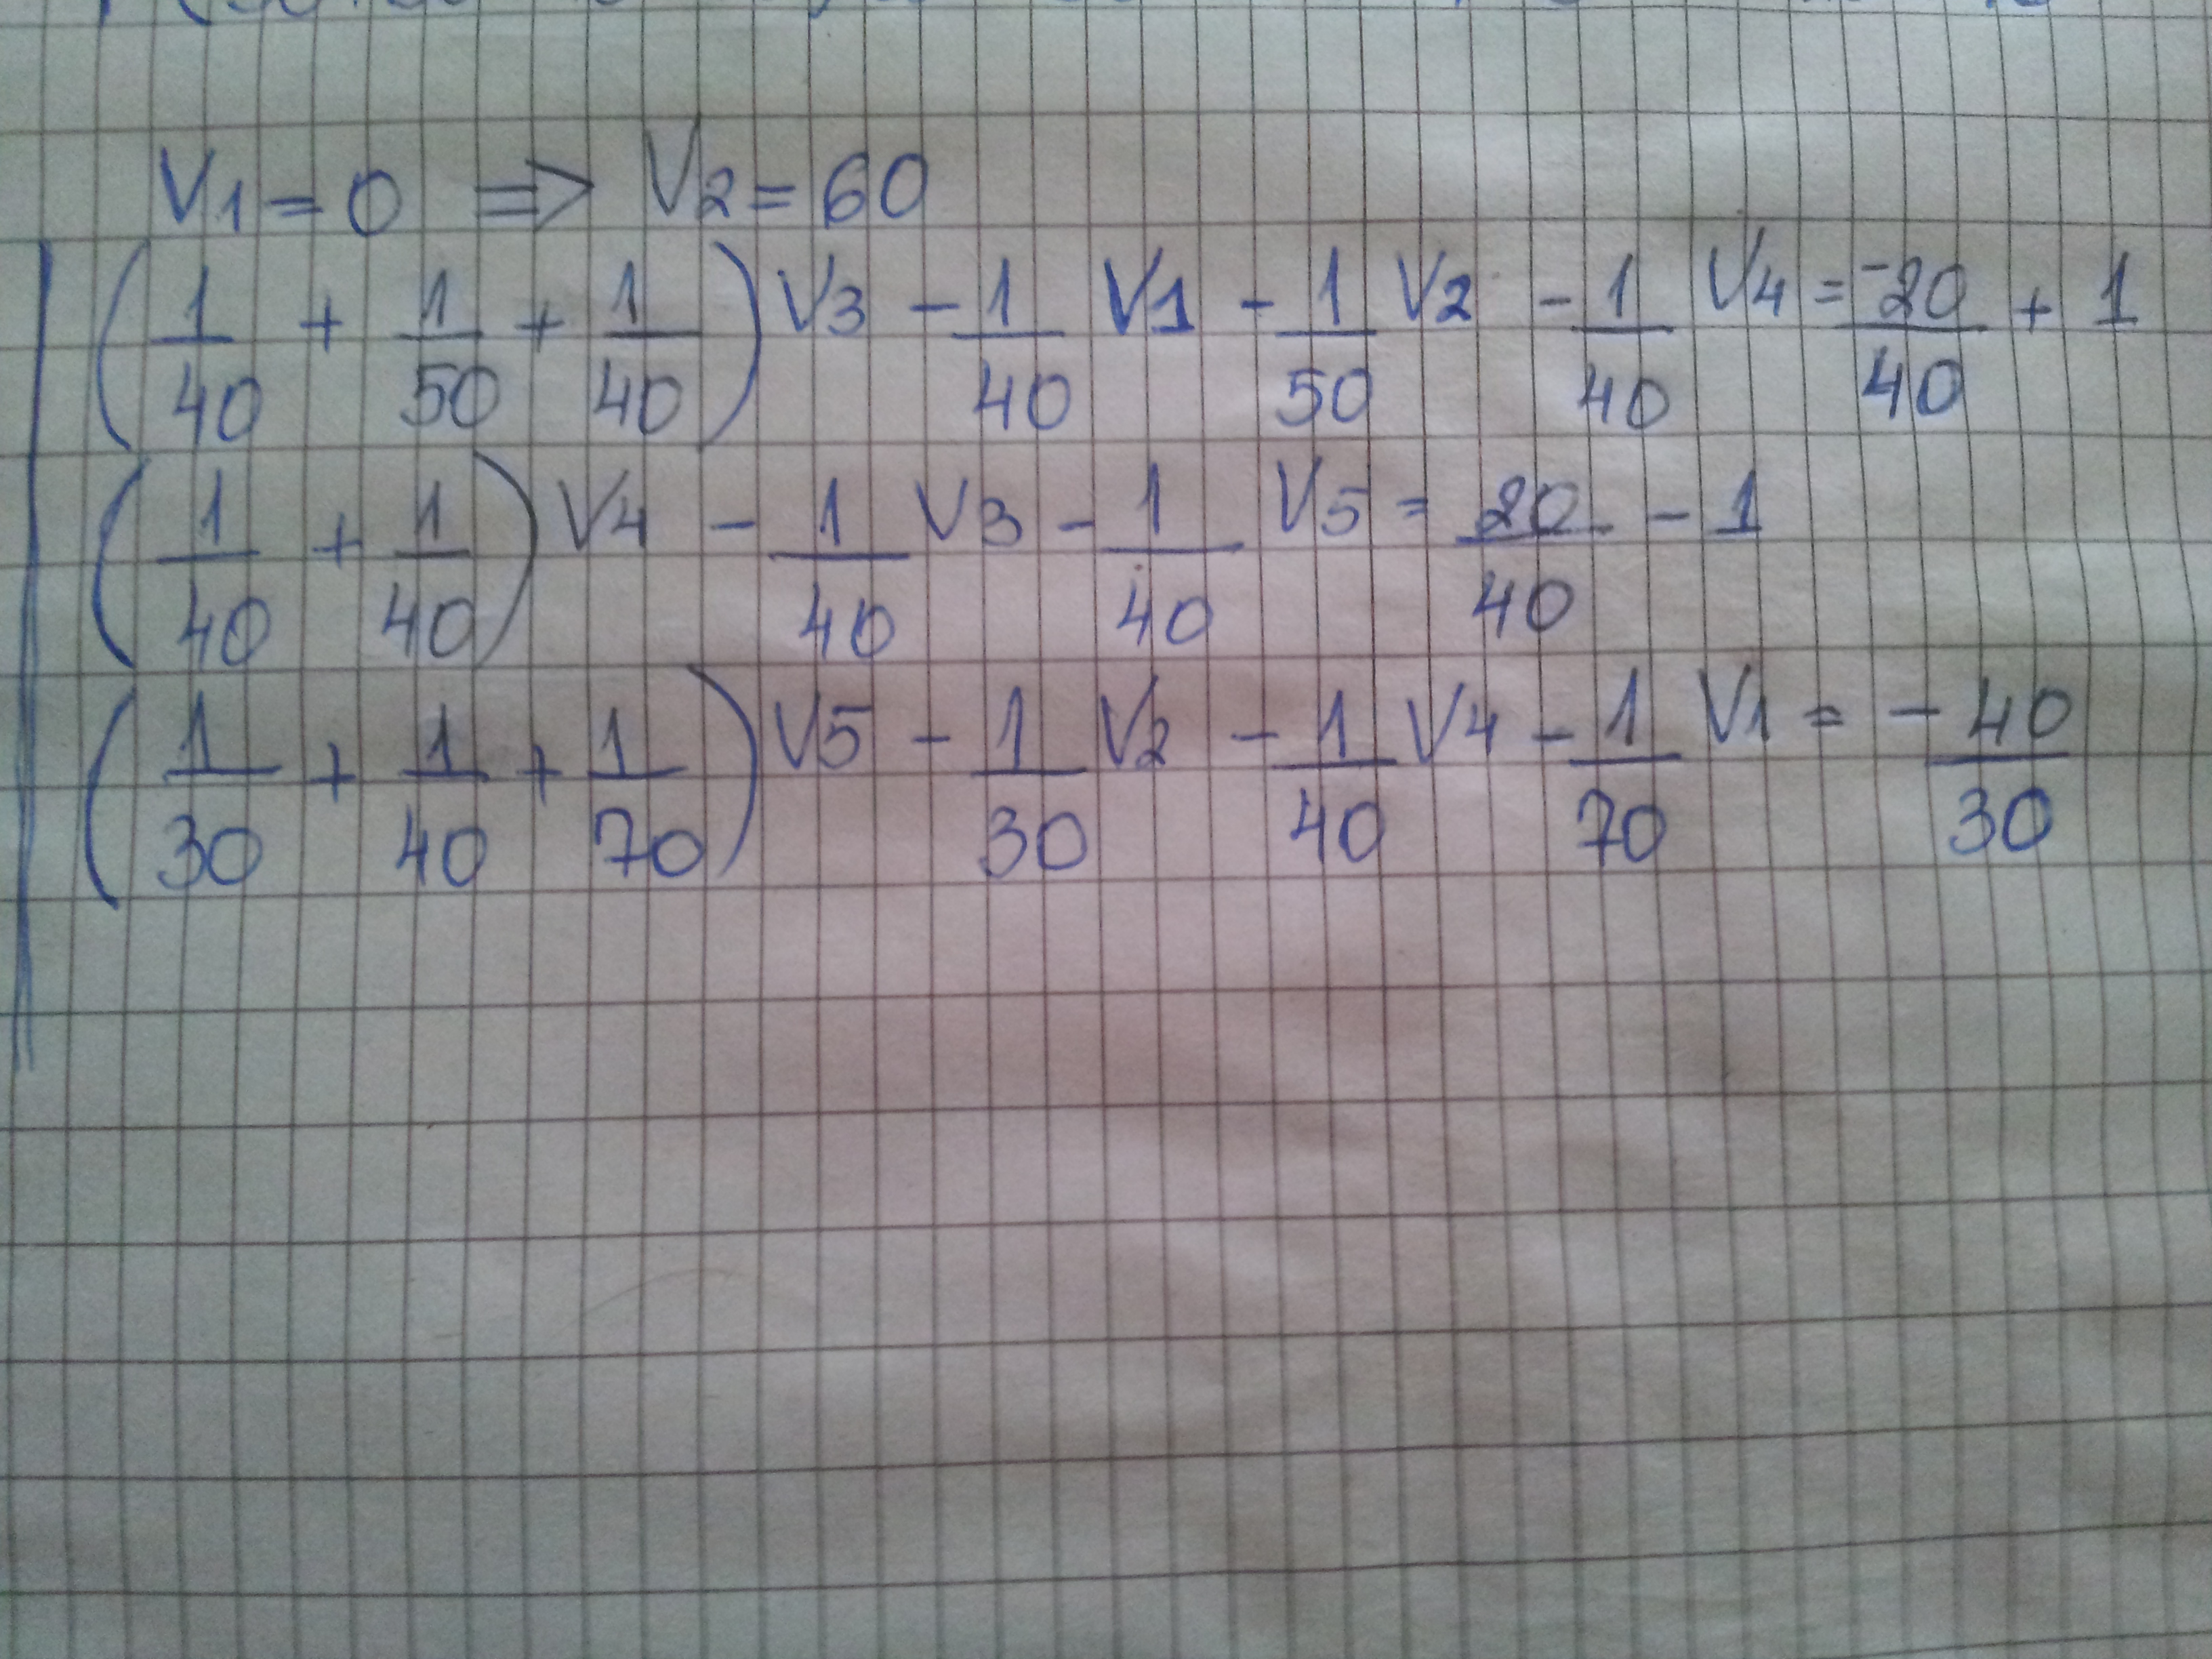 V1 = 0 => V2 = 60
(1/40 + 1/50 + 1/40) V3 - 1/40 V1 - 1/50 V2 - 1/40 V4 = -20/40 + 1
(1/40 + 1/40) V4 - 1/40 V3 - 1/40 V5 = 20/40 - 1
(1/30 + 1/40 + 1/70) V5 - 1/30 V2 - 1/40 V4 - 1/70 V1 = - 40/30